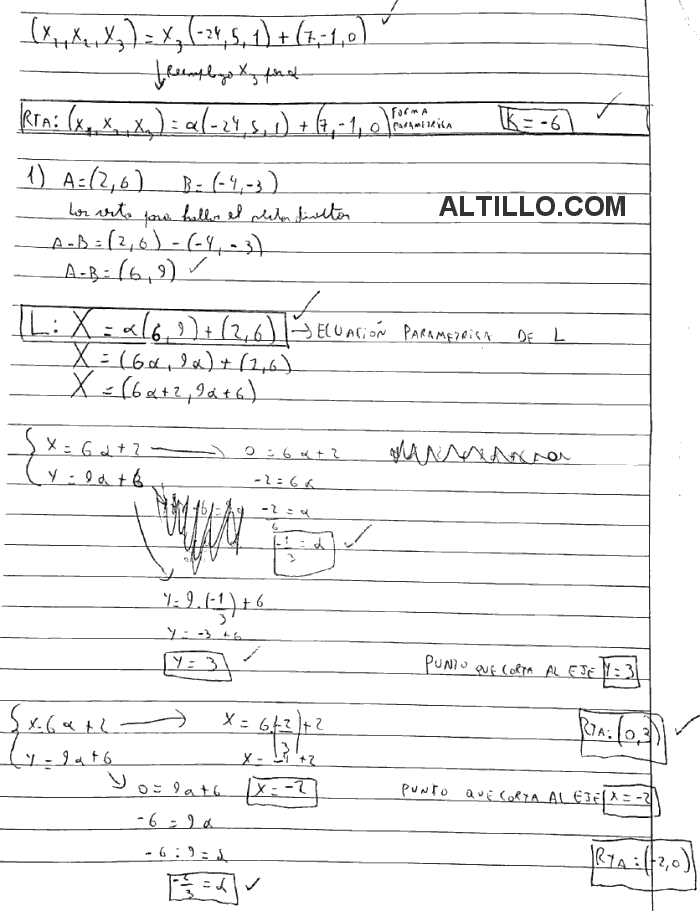 (X₁, X₂, X₃) = X₃(-24, 5, 1) + (7, -1, 0)
↓ Reemplazo X₃ por α
RTA: (X₁, X₂, X₃) = α(-24, 5, 1) + (7, -1, 0) FORMA PARAMETRICA K = -6
1) A = (2, 6) B = (-4, -3)
ALTILLO.COM
para hallar el vector director
A-B = (2, 6) - (-4, -3)
A-B = (6, 9)
L: X = α(6, 9) + (2, 6) → ECUACIÓN PARAMETRICA DE L
X = (6α, 9α) + (2, 6)
X = (6α+2, 9α+6)
{ X = 6α+2 → 0 = 6α+2
Y = 9α+6 -2 = 6α
-2/6 = α
-1/3 = α
Y = 9.(-1/3) + 6
Y = -3 + 6
Y = 3 PUNTO QUE CORTA AL EJE Y=3
{ X=6α+2 → X = 6(-2/3)+2 RTA: (0,3)
Y = 9α+6 X = -4+2
0 = 9α+6 X = -2 PUNTO QUE CORTA AL EJE X=-2
-6 = 9α
-6:9 = α RTA: (-2,0)
-2/3 = α